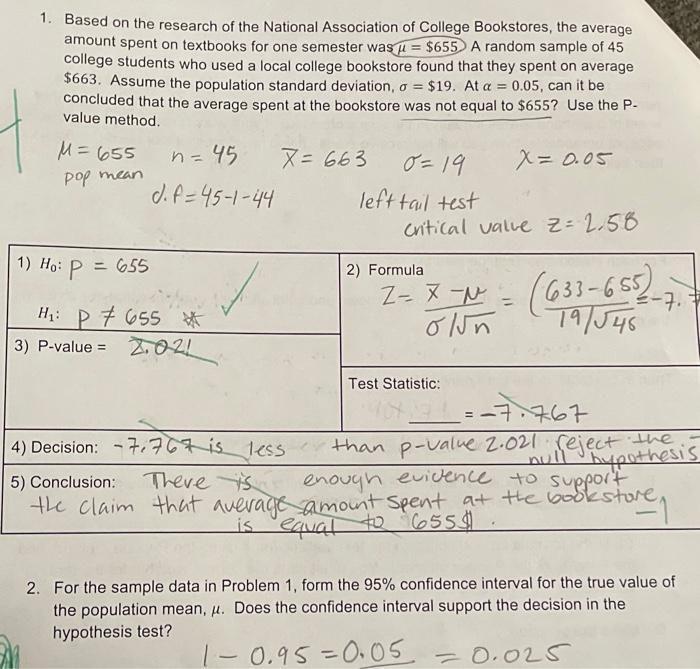 1. Based on the research of the National Association of College Bookstores, the average
amount spent on textbooks for one semester was μ = $655. A random sample of 45
college students who used a local college bookstore found that they spent on average
$663. Assume the population standard deviation, σ = $19. At α = 0.05, can it be
concluded that the average spent at the bookstore was not equal to $655? Use the P-
value method.
M = 655 n = 45 x̄ = 663 σ = 19 X = 0.05
pop mean
d.f = 45-1-44 left tail test
critical value Z = 2.58
1) H₀: P = 655
H₁: P ≠ 655
2) Formula
Z = x̄ - μ / σ/√n = (633-655) / 19/√45 = -7.7
3) P-value = 2.021
Test Statistic:
= -7.767
4) Decision: -7.767 is less than p-value 2.021 reject the
null hypothesis
5) Conclusion: There is enough evidence to support
the claim that average amount spent at the bookstore
is equal to 655$.
-1
2. For the sample data in Problem 1, form the 95% confidence interval for the true value of
the population mean, μ. Does the confidence interval support the decision in the
hypothesis test?
1 - 0.95 = 0.05 = 0.025